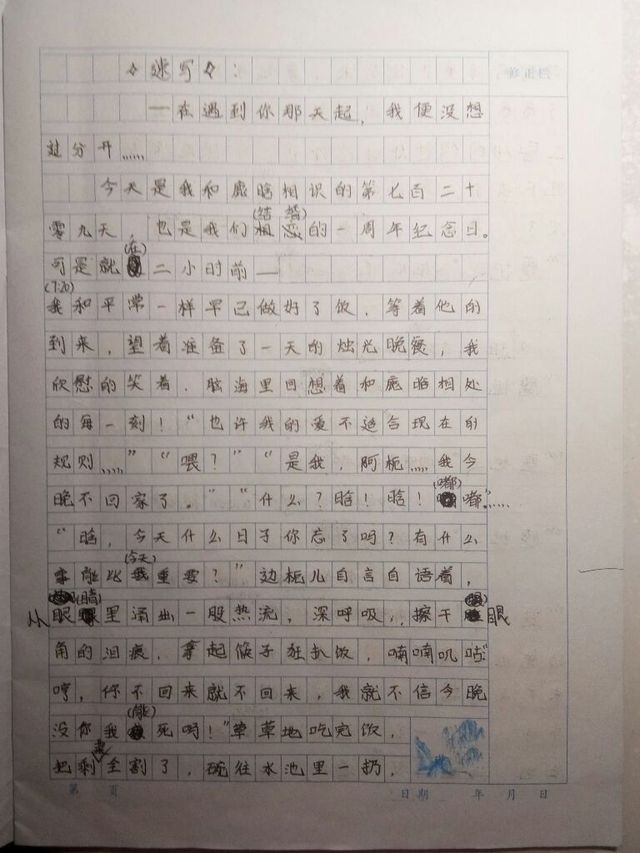 《速写》：
修正栏
一在遇到你那天起，我便没想
过分开……
今天是我和鹿晗相识的第七百二十
(结婚)
零九天 也是我们相恋的一周年纪念日。
(在)
可是就 二小时前一
(7:20)
我和平常一样早已做好了饭，等着他的
到来，望着准备了一天的烛光晚餐，我
欣慰的笑着，脑海里回想着和鹿晗相处
的每一刻！“也许我的爱不适合现在的
规则……”“喂？”“是我，阿栀……我今
(嘟)
晚不回家了。”“什么？晗！晗！ 嘟”……
“晗，今天什么日子你忘了吗？有什么
(今天)
事能比我重要？”边栀儿自言自语着，
(睛)
从眼 里涌出一股热流，深呼吸，擦干 眼
角的泪痕，拿起筷子狂扒饭，喃喃叽咕“
哼，你不回来就不回来，我就不信今晚
(能)
没你我 死啊！”草草地吃完饭，
菜
把剩 全割了，碗往水池里一扔，
第 页
日期 年 月 日